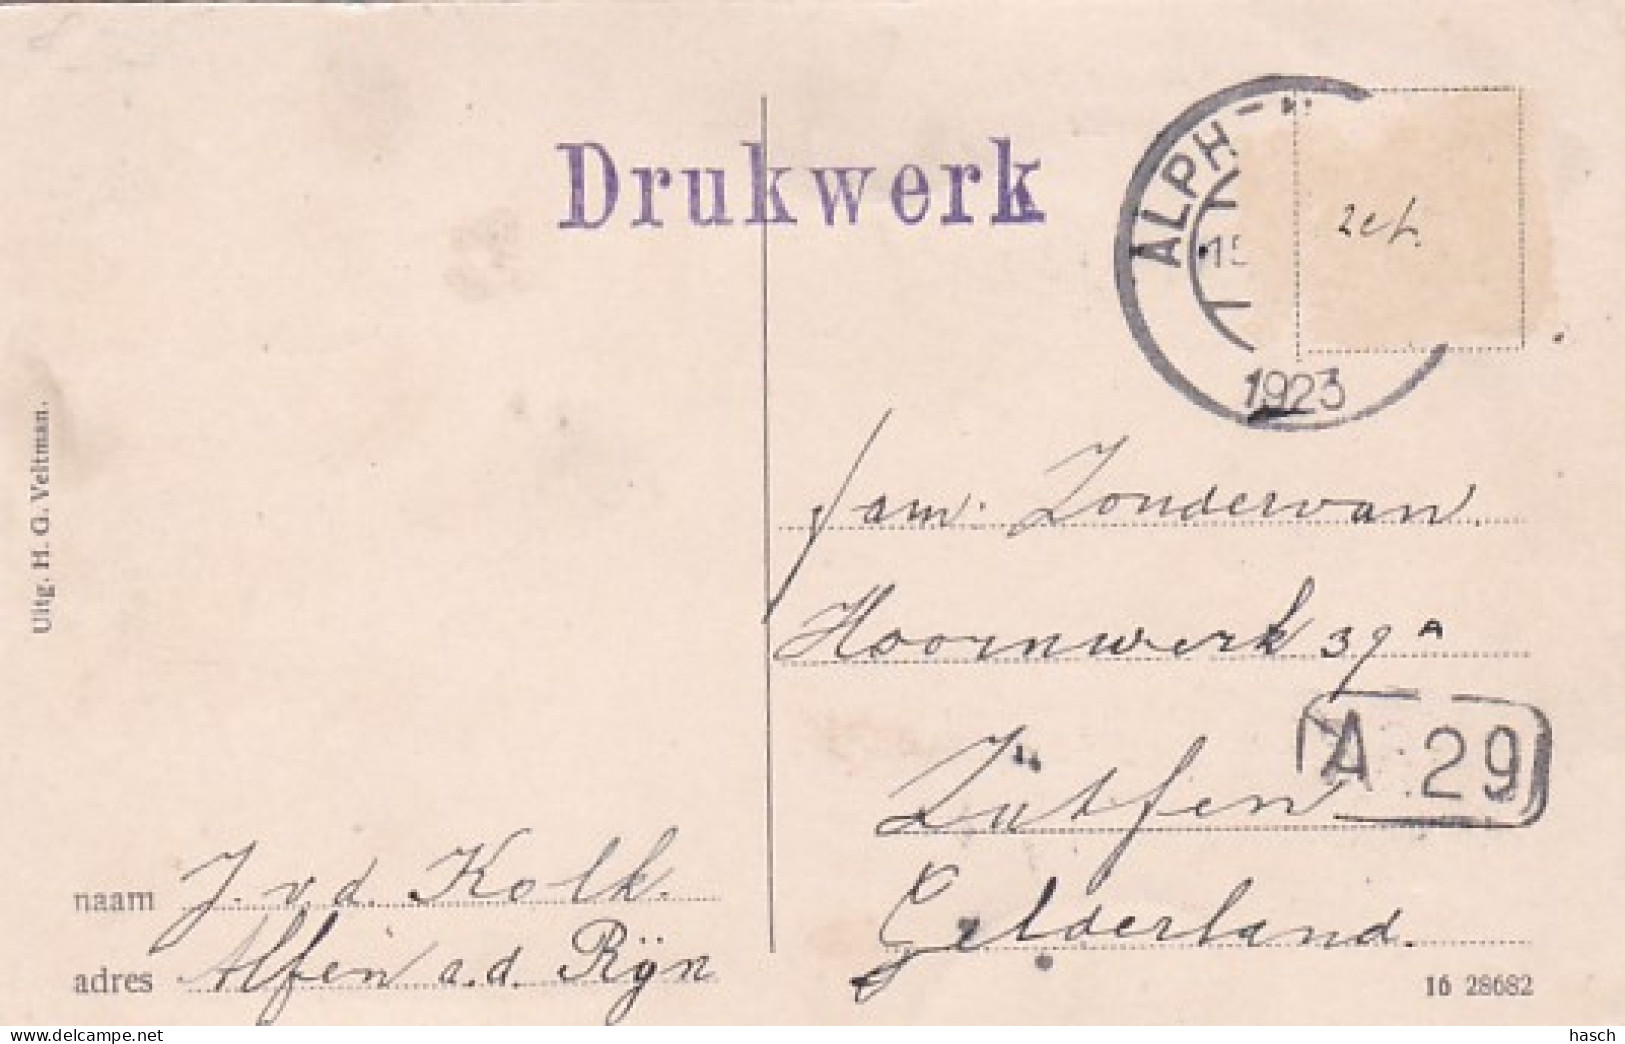 Drukwerk
ALPH
15
1923
2ct.
Uitg. H. G. Veltman.
fam. Zondervan.
Hoornwerk 39A
Zütfen
A 29
Gelderland.
naam J. v. d. Kolk.
adres Alfen a.d. Rijn
16 28682
hasch